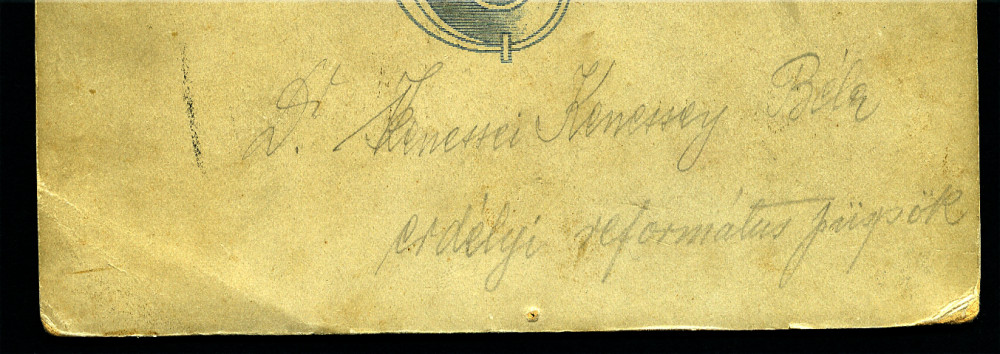 Dr. Kenessei Kenessey Béla
erdélyi református püspök